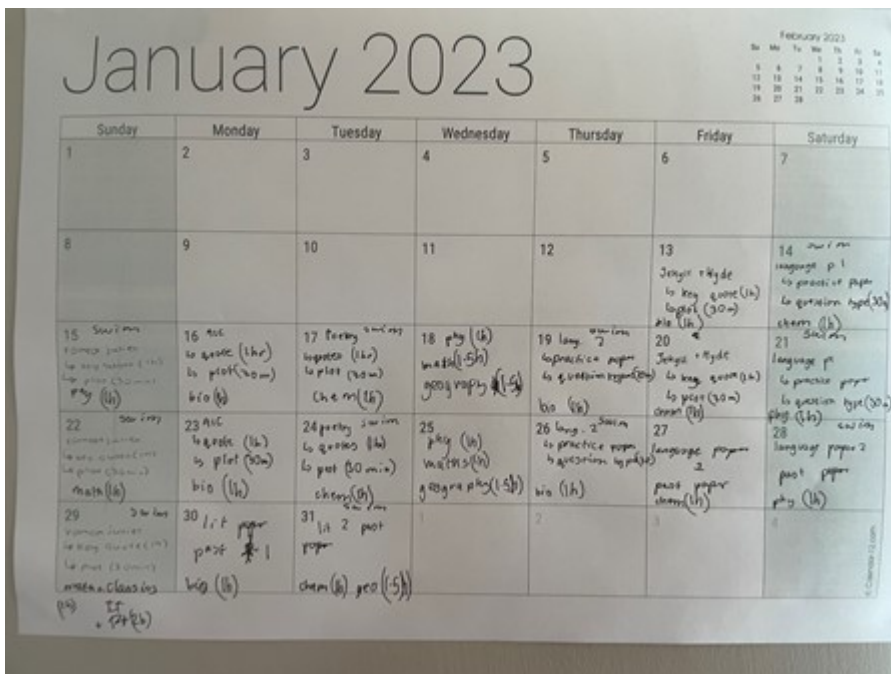 January 2023
February 2023
Su Mo Tu We Th Fr Sa
1 2 3 4
5 6 7 8 9 10 11
12 13 14 15 16 17 18
19 20 21 22 23 24 25
26 27 28
Sunday Monday Tuesday Wednesday Thursday Friday Saturday
1 2 3 4 5 6 7
8 9 10 11 12
13
Jekyll + Hyde
↳ key quote (1h)
↳ plot (30m)
bio (1h)
14 swim
language p 1
↳ practice paper
↳ question type (30m)
chem (1h)
15 swim
romeo juliet
↳ key quote (1h)
↳ plot (30min)
phy (1h)
16
↳ quote (1hr)
↳ plot (30m)
bio (1h)
17 Poetry swim
↳ quotes (1hr)
↳ plot (30m)
chem (1h)
18 phy (1h)
math (1.5h)
geography (1.5h)
19 lang. 2 swim
↳ practice paper
↳ question type
bio (1h)
20
Jekyll + Hyde
↳ key quote (1h)
↳ plot (30m)
chem (1h)
21 swim
language p
↳ practice paper
↳ question type (30m)
phy. (1h)
22 swim
romeo juliet
↳ key quote (1h)
↳ plot (30min)
math (1h)
23
↳ quote (1h)
↳ plot (30m)
bio (1h)
24 poetry swim
↳ quotes (1h)
↳ plot (30 min)
chem (1h)
25
phy (1h)
maths (1h)
geography (1.5h)
26 lang. 2 swim
↳ practice paper
↳ question type
bio (1h)
27
language paper
2
past paper
chem (1h)
28 swim
language paper 2
past paper
phy (1h)
29 swim
romeo juliet
↳ key quote (1h)
↳ plot (30min)
(1h)
30 lit paper
past 1
bio (1h)
31 swim
lit 2 past
paper
chem (1h) geo (1.5h)
1 2 3 4
© Calendar-12.com